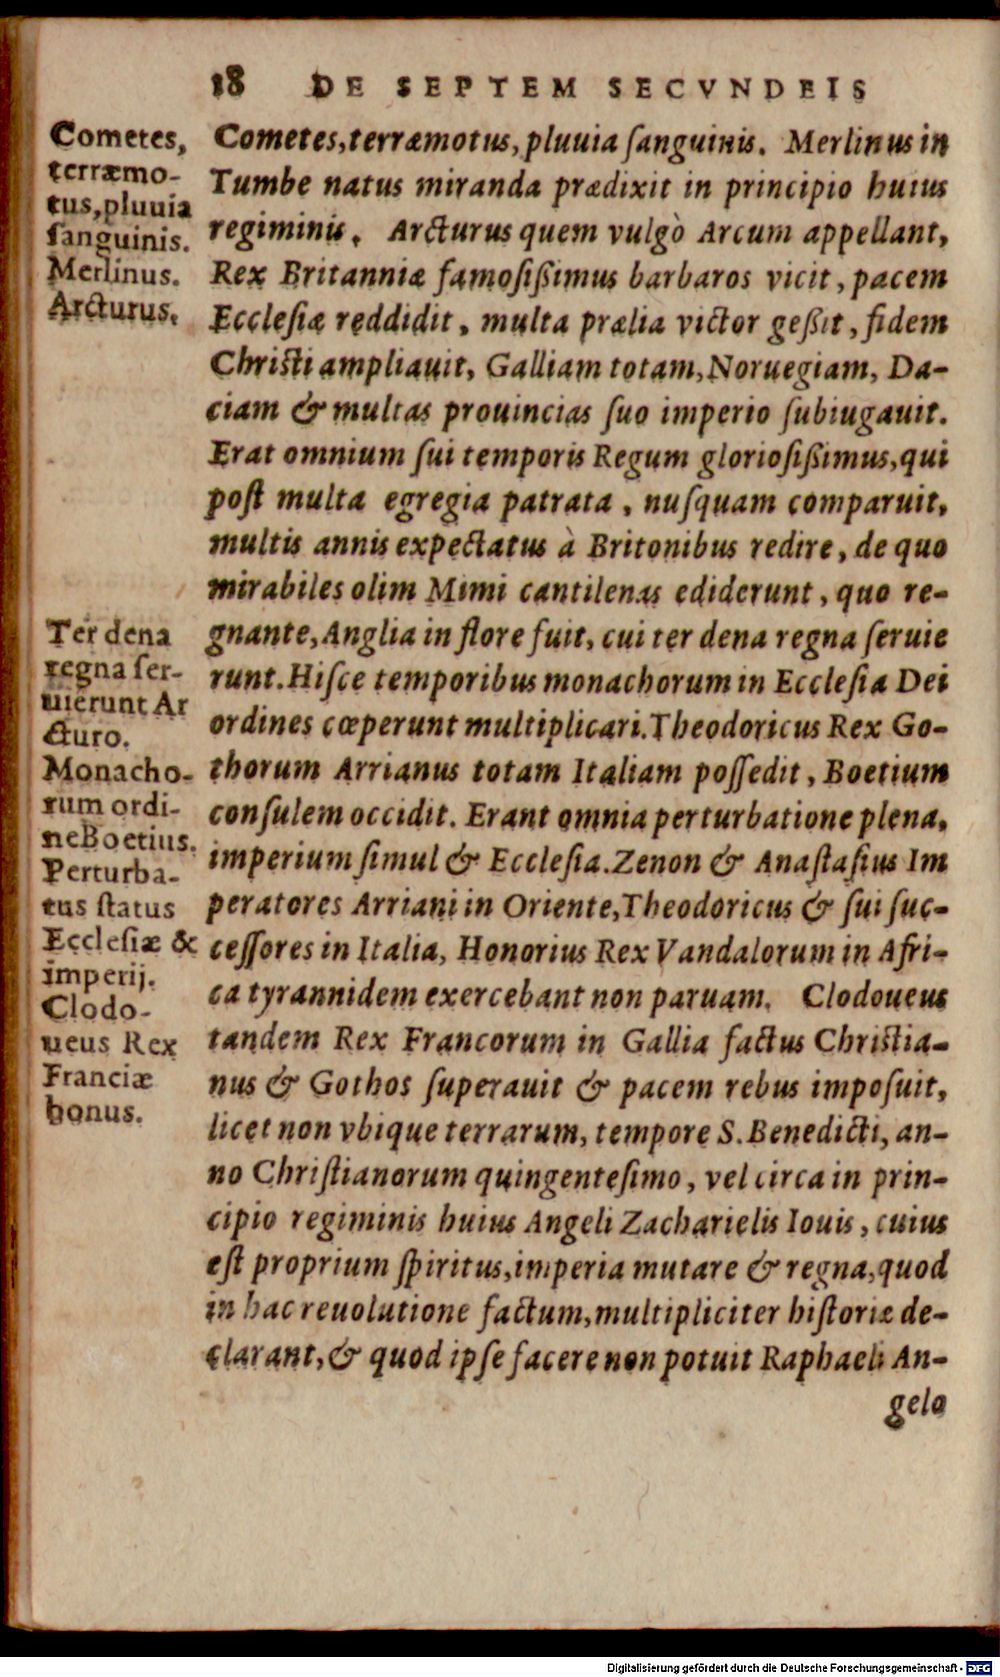 18 DE SEPTEM SECVNDEIS
Cometes,
terræmo-
tus,pluuia
ſanguinis.
Merlinus.
Arcturus.
Ter dena
regna ſer-
uierunt Ar
cturo.
Monacho-
rum ordi-
neBoetius.
Perturba-
tus ſtatus
Ecclesiæ &
imperij.
Clodo-
ueus Rex
Franciæ
bonus.
Cometes,terræmotus,pluuia ſanguinis. Merlinus in
Tumbe natus miranda prædixit in principio huius
regiminis. Arcturus quem vulgò Arcum appellant,
Rex Britanniæ famoſißimus barbaros vicit, pacem
Eccleſiæ reddidit, multa prælia victor geßit, fidem
Chriſti ampliauit, Galliam totam,Noruegiam, Da-
ciam & multas prouincias ſuo imperio ſubiugauit.
Erat omnium ſui temporis Regum glorioſißimus,qui
poſt multa egregia patrata, nuſquam comparuit,
multis annis expectatus à Britonibus redire, de quo
mirabiles olim Mimi cantilenas ediderunt, quo re-
gnante,Anglia in flore fuit, cui ter dena regna ſeruie
runt.Hiſce temporibus monachorum in Eccleſia Dei
ordines cœperunt multiplicari.Theodoricus Rex Go-
thorum Arrianus totam Italiam poſſedit, Boetium
conſulem occidit. Erant omnia perturbatione plena,
imperium ſimul & Eccleſia.Zenon & Anaſtaſius Im
peratores Arriani in Oriente,Theodoricus & ſui ſuc-
ceſſores in Italia, Honorius Rex Vandalorum in Afri-
ca tyrannidem exercebant non paruam. Clodoueus
tandem Rex Francorum in Gallia factus Chriſtia-
nus & Gothos ſuperauit & pacem rebus impoſuit,
licet non vbique terrarum, tempore S. Benedicti, an-
no Chriſtianorum quingenteſimo, vel circa in prin-
cipio regiminis huius Angeli Zacharielis Iouis, cuius
eſt proprium ſpiritus,imperia mutare & regna,quod
in hac reuolutione factum,multipliciter hiſtoriæ de-
clarant,& quod ipſe facere non potuit Raphaeli An-
gelo
Digitalisierung gefördert durch die Deutsche Forschungsgemeinschaft - DFG